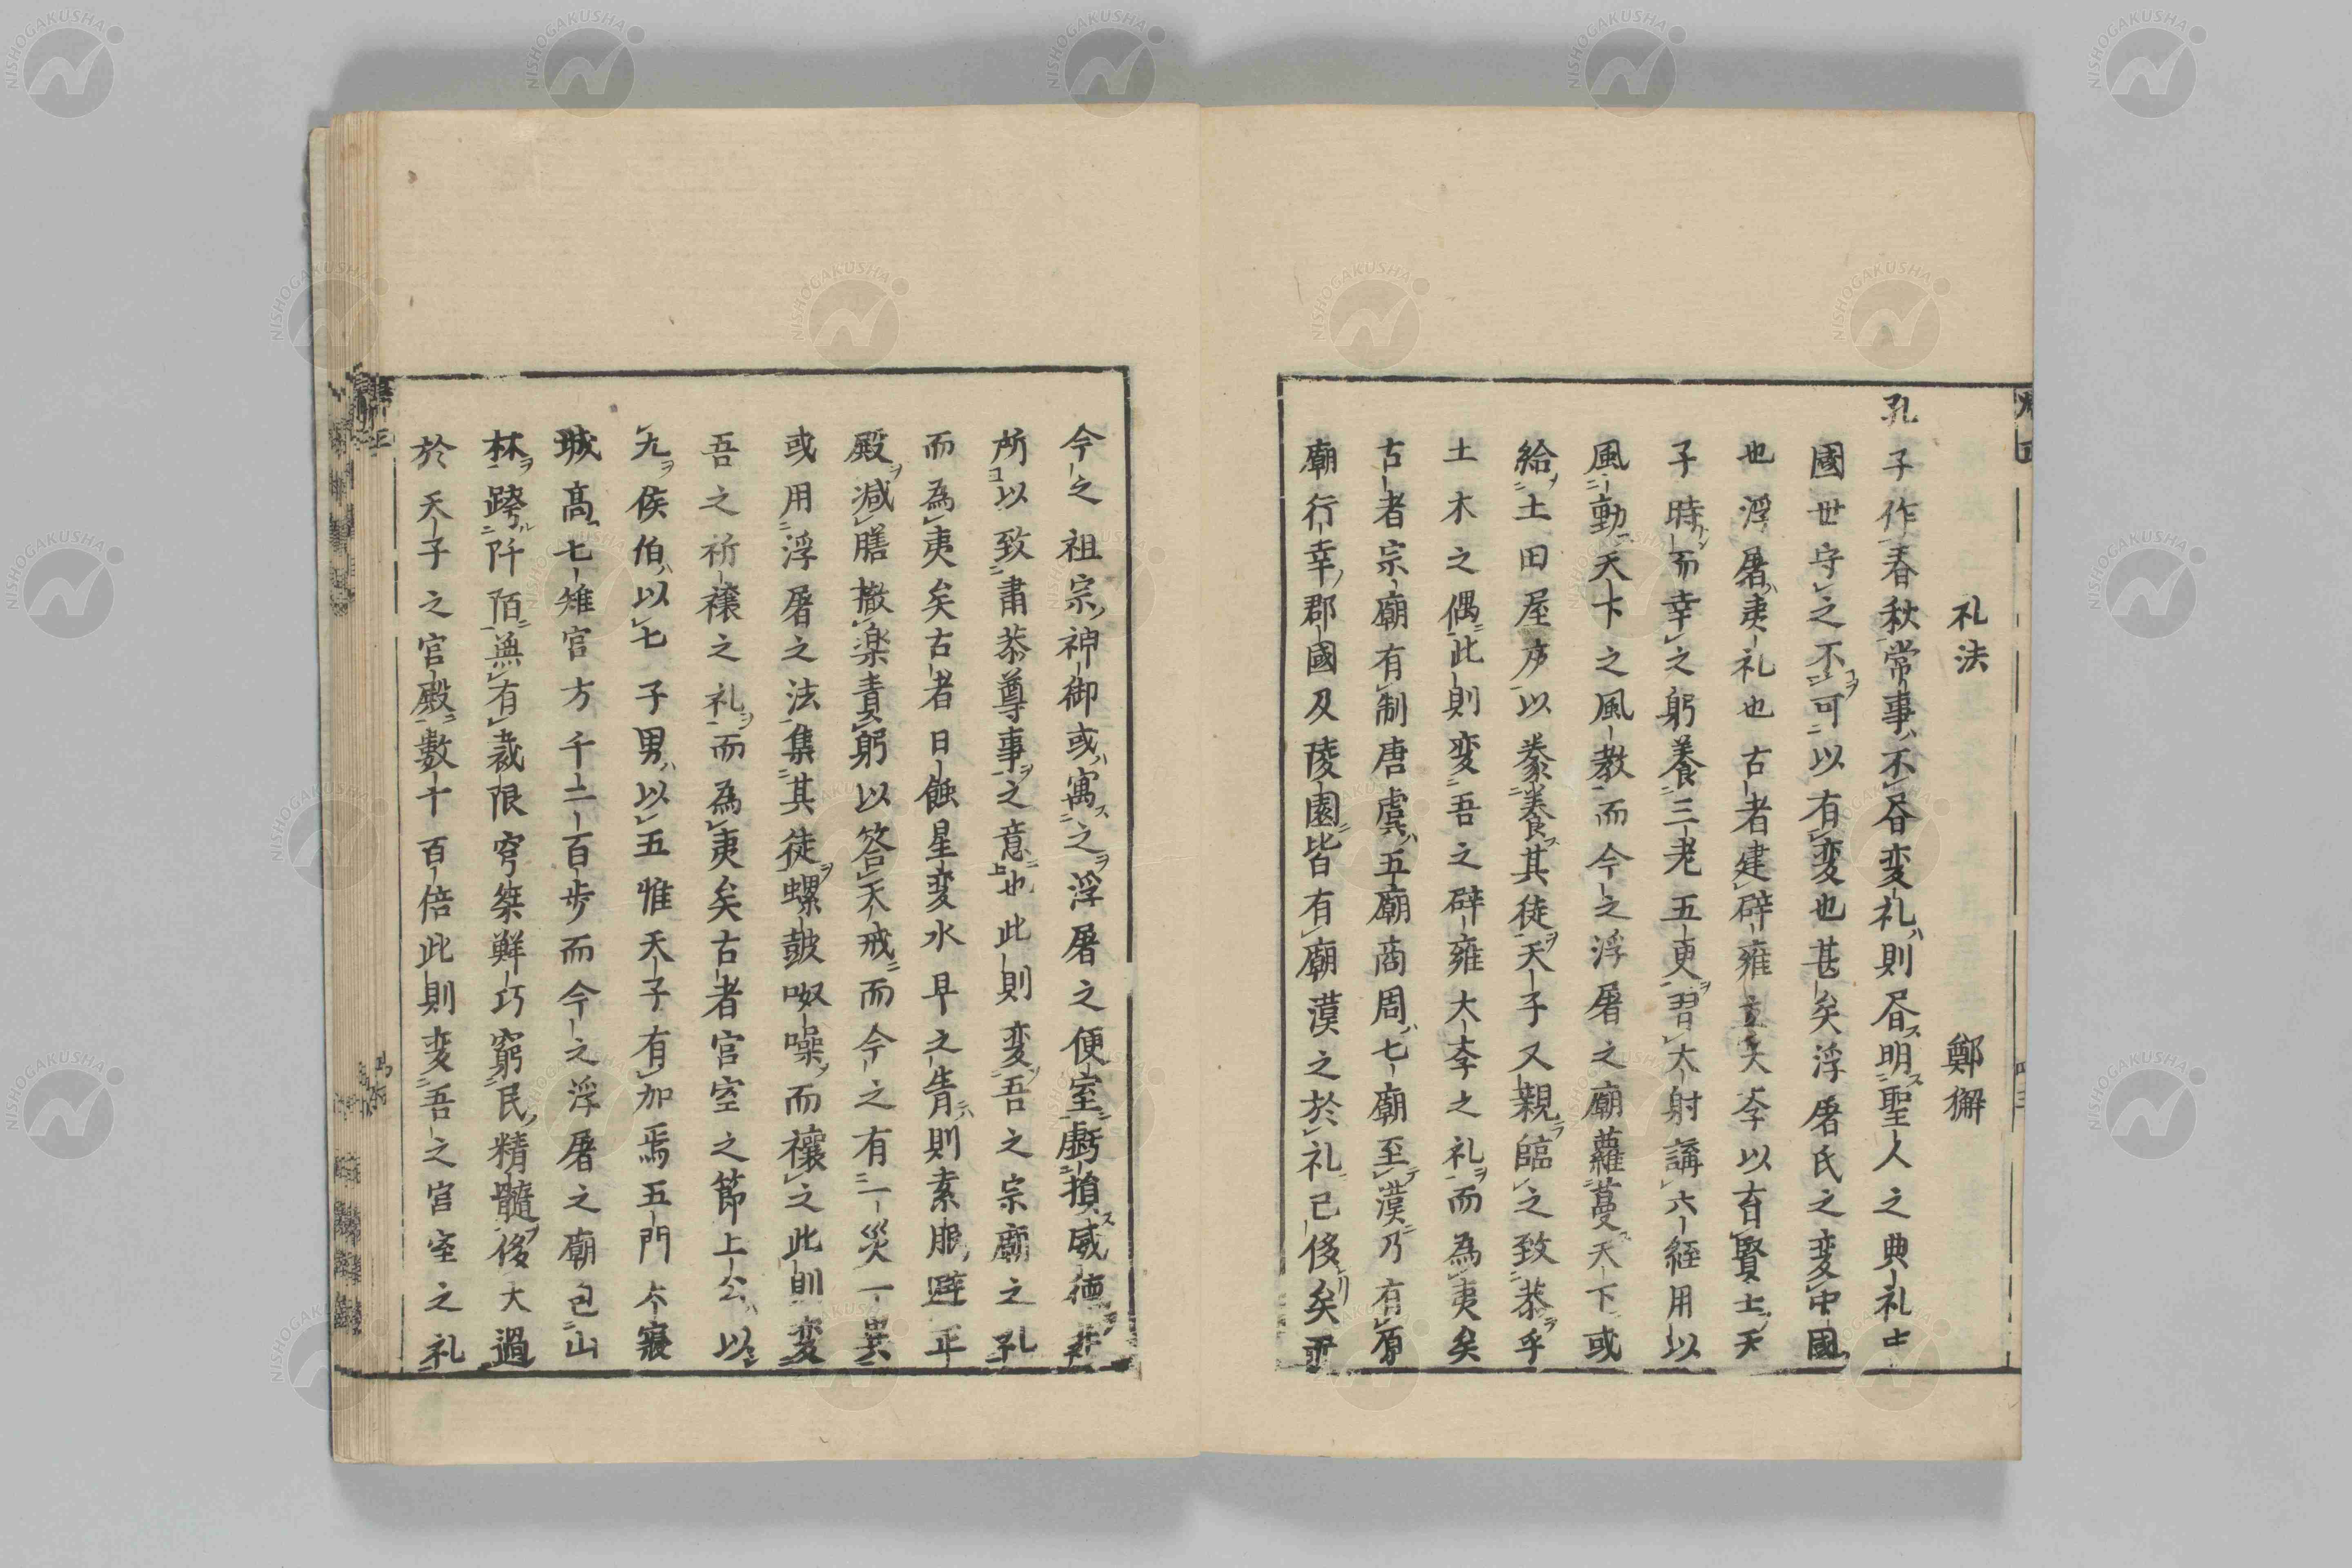 礼法　鄭獬
孔子作春秋常事不昏変礼則昏明聖人之典礼士
國世守之不可以有変也甚矣浮屠氏之変中國
也浮屠夷礼也古者建辟雍立大孝以育賢士天
子時而幸之躬養三老五更習大射講六経用以
風動天下之風教而今之浮屠之廟蘿蔓天下或
給土田屋庐以豢養其徒天子又親臨之致恭乎
土木之偶此則変吾之辟雍大孝之礼而為夷矣
古者宗廟有制唐虞五廟商周七廟至漢乃有原
廟行幸郡國及陵園皆有廟漢之於礼已侈矣
今之祖宗神御或寓之浮屠之便室虧損威徳非
所以致肅恭尊事之意也此則変吾之宗廟之礼
而為夷矣古者日蝕星変水旱之眚則素服避正
殿減膳撤楽責躬以答天戒而今之有一災一異
或用浮屠之法集其徒螺鼓呶噪而禳之此則変
吾之祈禳之礼而為夷矣古者宮室之節上公以
九侯伯以七子男以五惟天子有加焉五門六寢
城高七雉宮方千二百步而今之浮屠之廟包山
林跨阡陌無有裁限穹桀鮮巧窮民精髓侈大過
於天子之官殿數十百倍此則変吾之宮室之礼